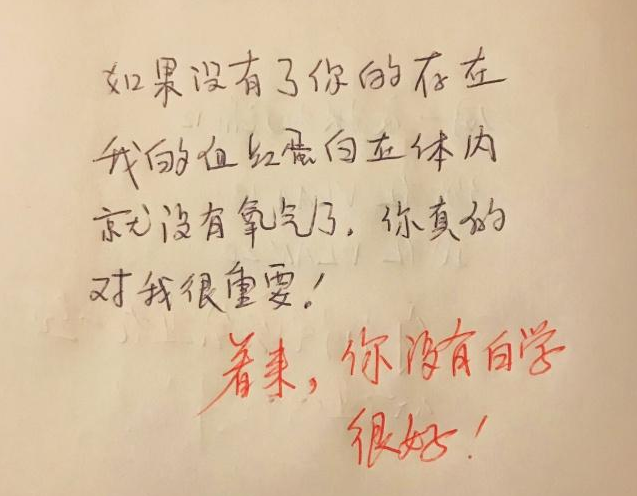 如果没有了你的存在
我的血红蛋白在体内
就没有氧气了，你真的
对我很重要！
看来，你没有白学
很好！